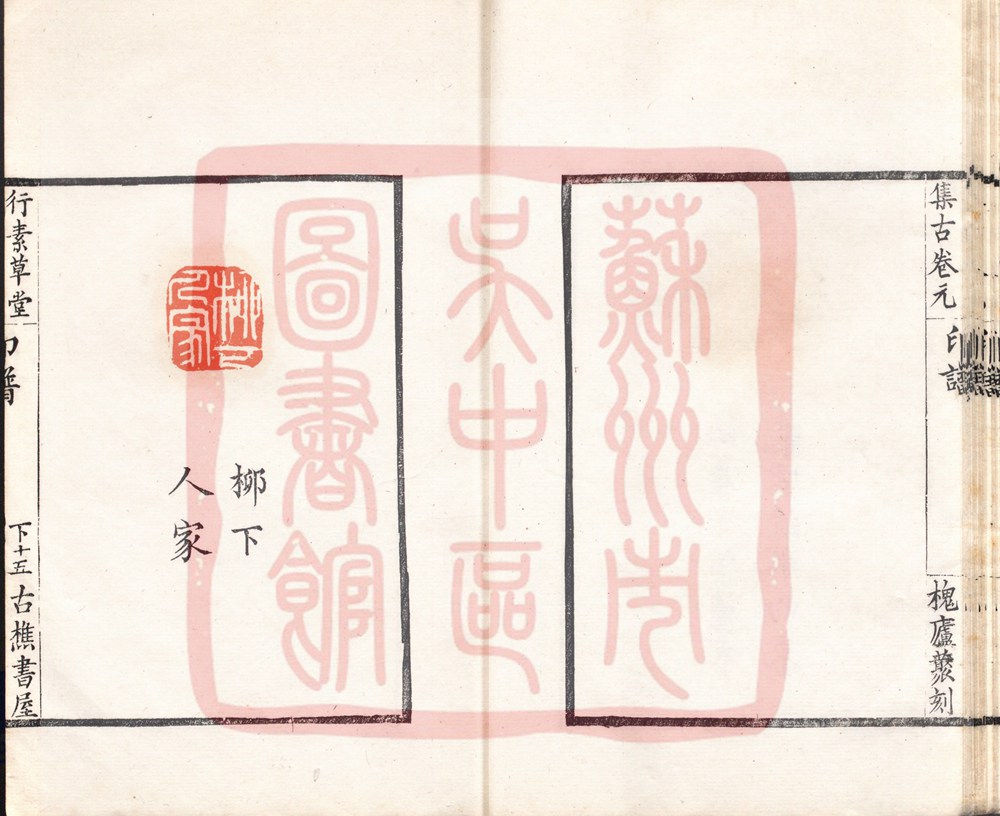 集古卷元
印譜
槐廬叢刻
蘇州市
吳中區
圖書館
柳下
人家
柳下
人家
行素草堂
印譜
下十五
古樵書屋